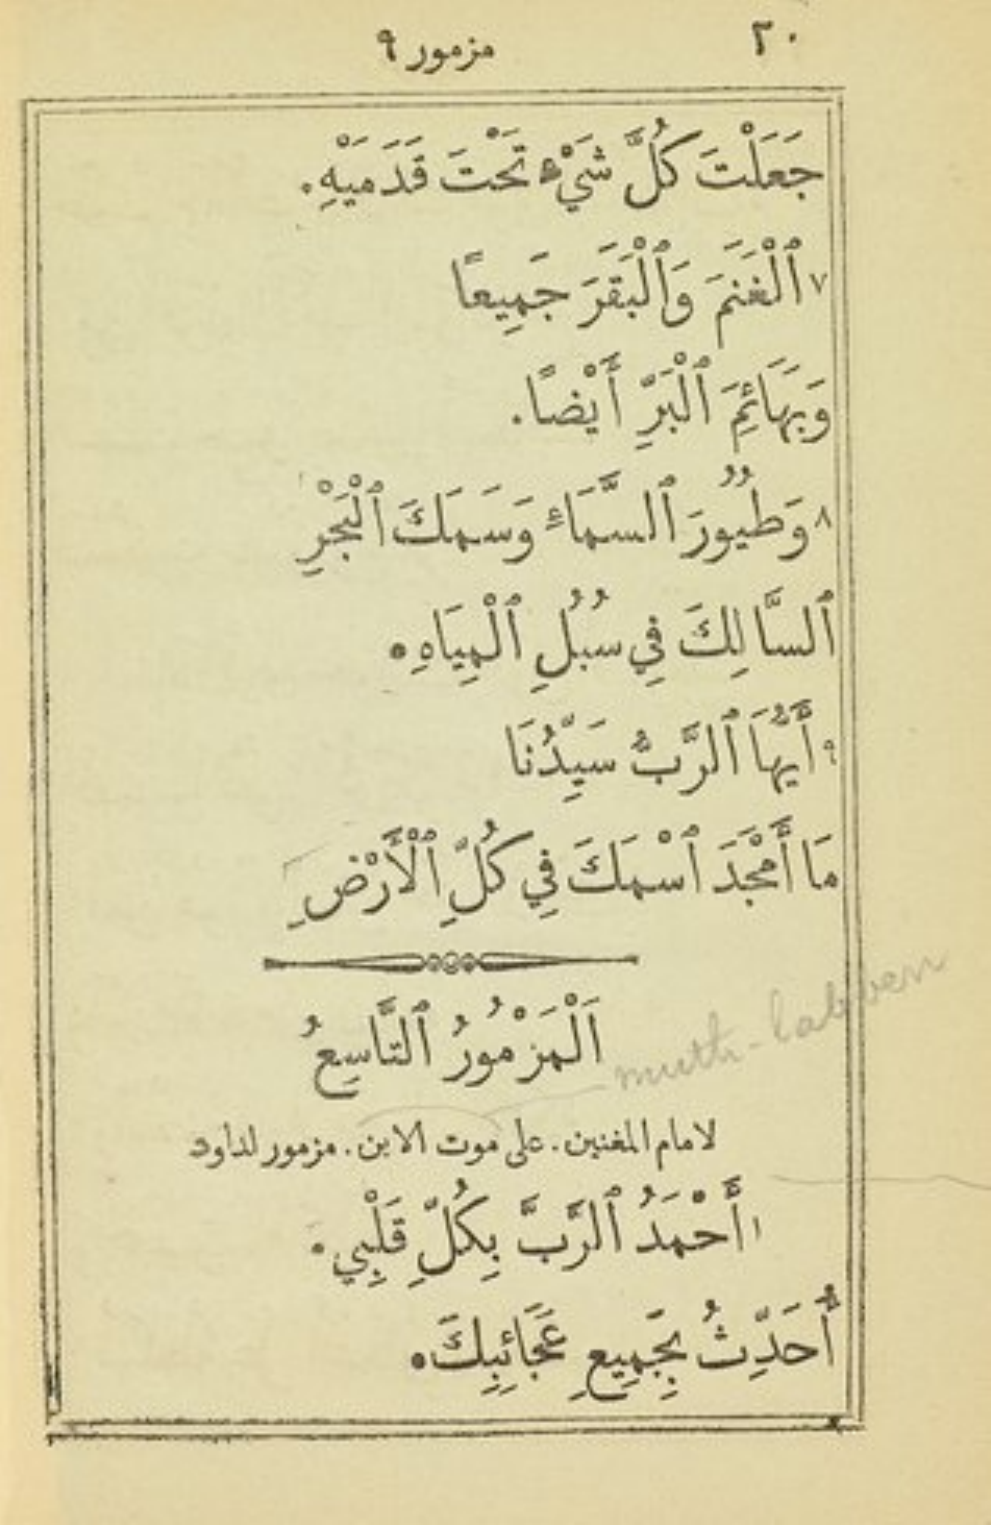 ٢٠ مزمور ٩
جَعَلْتَ كُلَّ شَيْءٍ تَحْتَ قَدَمَيْهِ.
٧ ٱلْغَنَمَ وَٱلْبَقَرَ جَمِيعًا
وَبَهَائِمَ ٱلْبَرِّ أَيْضًا.
٨ وَطُيُورَ ٱلسَّمَاءِ وَسَمَكَ ٱلْبَحْرِ
ٱلسَّالِكَ فِي سُبُلِ ٱلْمِيَاهِ.
٩ أَيُّهَا ٱلرَّبُّ سَيِّدُنَا
مَا أَمْجَدَ ٱسْمَكَ فِي كُلِّ ٱلْأَرْضِ
اَلْمَزْمُورُ ٱلتَّاسِعُ
muth-labben
لامام المغنين. على موت الابن. مزمور لداود
١ أَحْمَدُ ٱلرَّبَّ بِكُلِّ قَلْبِي.
أُحَدِّثُ بِجَمِيعِ عَجَائِبِكَ.